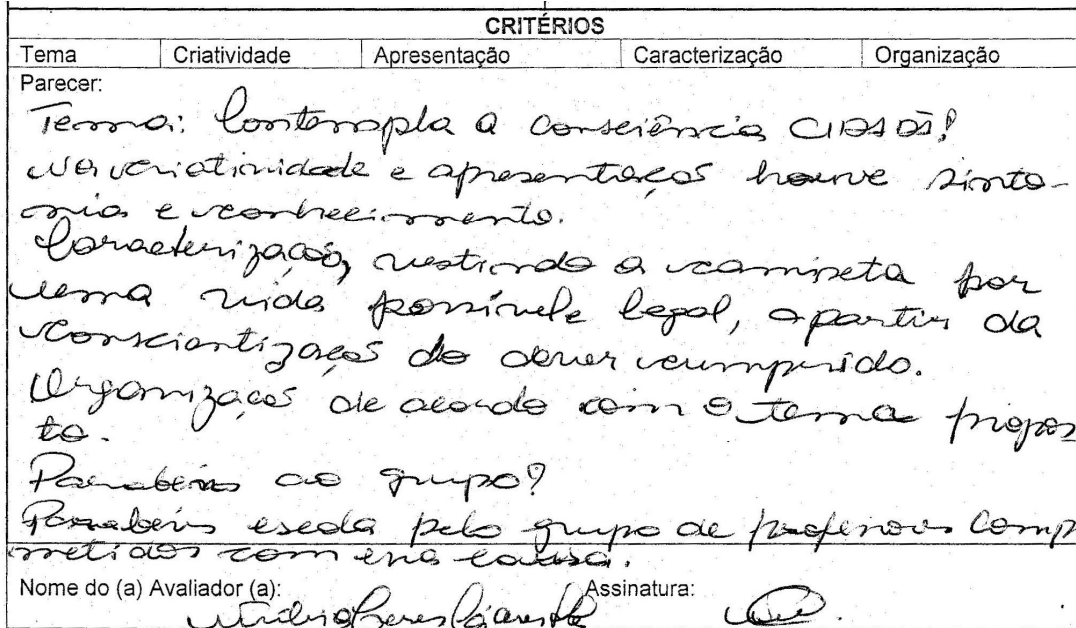 CRITÉRIOS
Tema Criatividade Apresentação Caracterização Organização
Parecer:
Tema: Contempla a consciência CIDADÃ!
Na criatividade e apresentação houve sinto-
nia e conhecimento.
Caracterização, vestindo a camiseta por
uma vida possível e legal, a partir da
conscientização do dever cumprido.
Organização de acordo com o tema propos
to.
Parabéns ao grupo!
Parabéns escola pelo grupo de professores comp
metidos com essa causa.
Nome do (a) Avaliador (a): Assinatura: